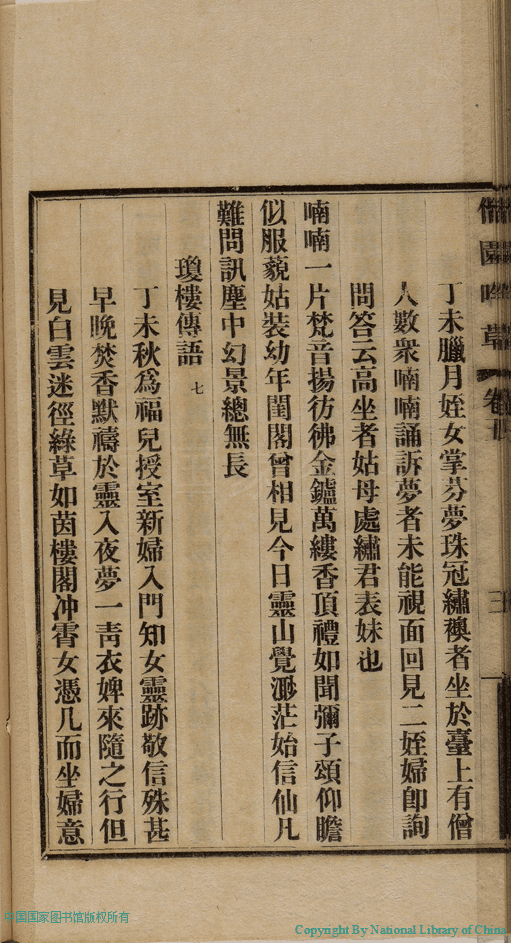 丁未臘月姪女掌芬夢珠冠繡襖者坐於臺上有僧
人數衆喃喃誦訴夢者未能視面回見二姪婦卽詢
問答云高坐者姑母處繡君表妹也
喃喃一片梵音揚彷彿金鑪萬縷香頂禮如聞彌子頌仰瞻
似服藐姑裝幼年閨閣曾相見今日靈山覺渺茫始信仙凡
難問訊塵中幻景總無長
瓊樓傳語 七
丁未秋爲福兒授室新婦入門知女靈跡敬信殊甚
早晚焚香默禱於靈入夜夢一靑衣婢來隨之行但
見白雲迷徑綠草如茵樓閣冲霄女憑几而坐婦意
一国国家图书馆版权所有
Copyright By National Library of China